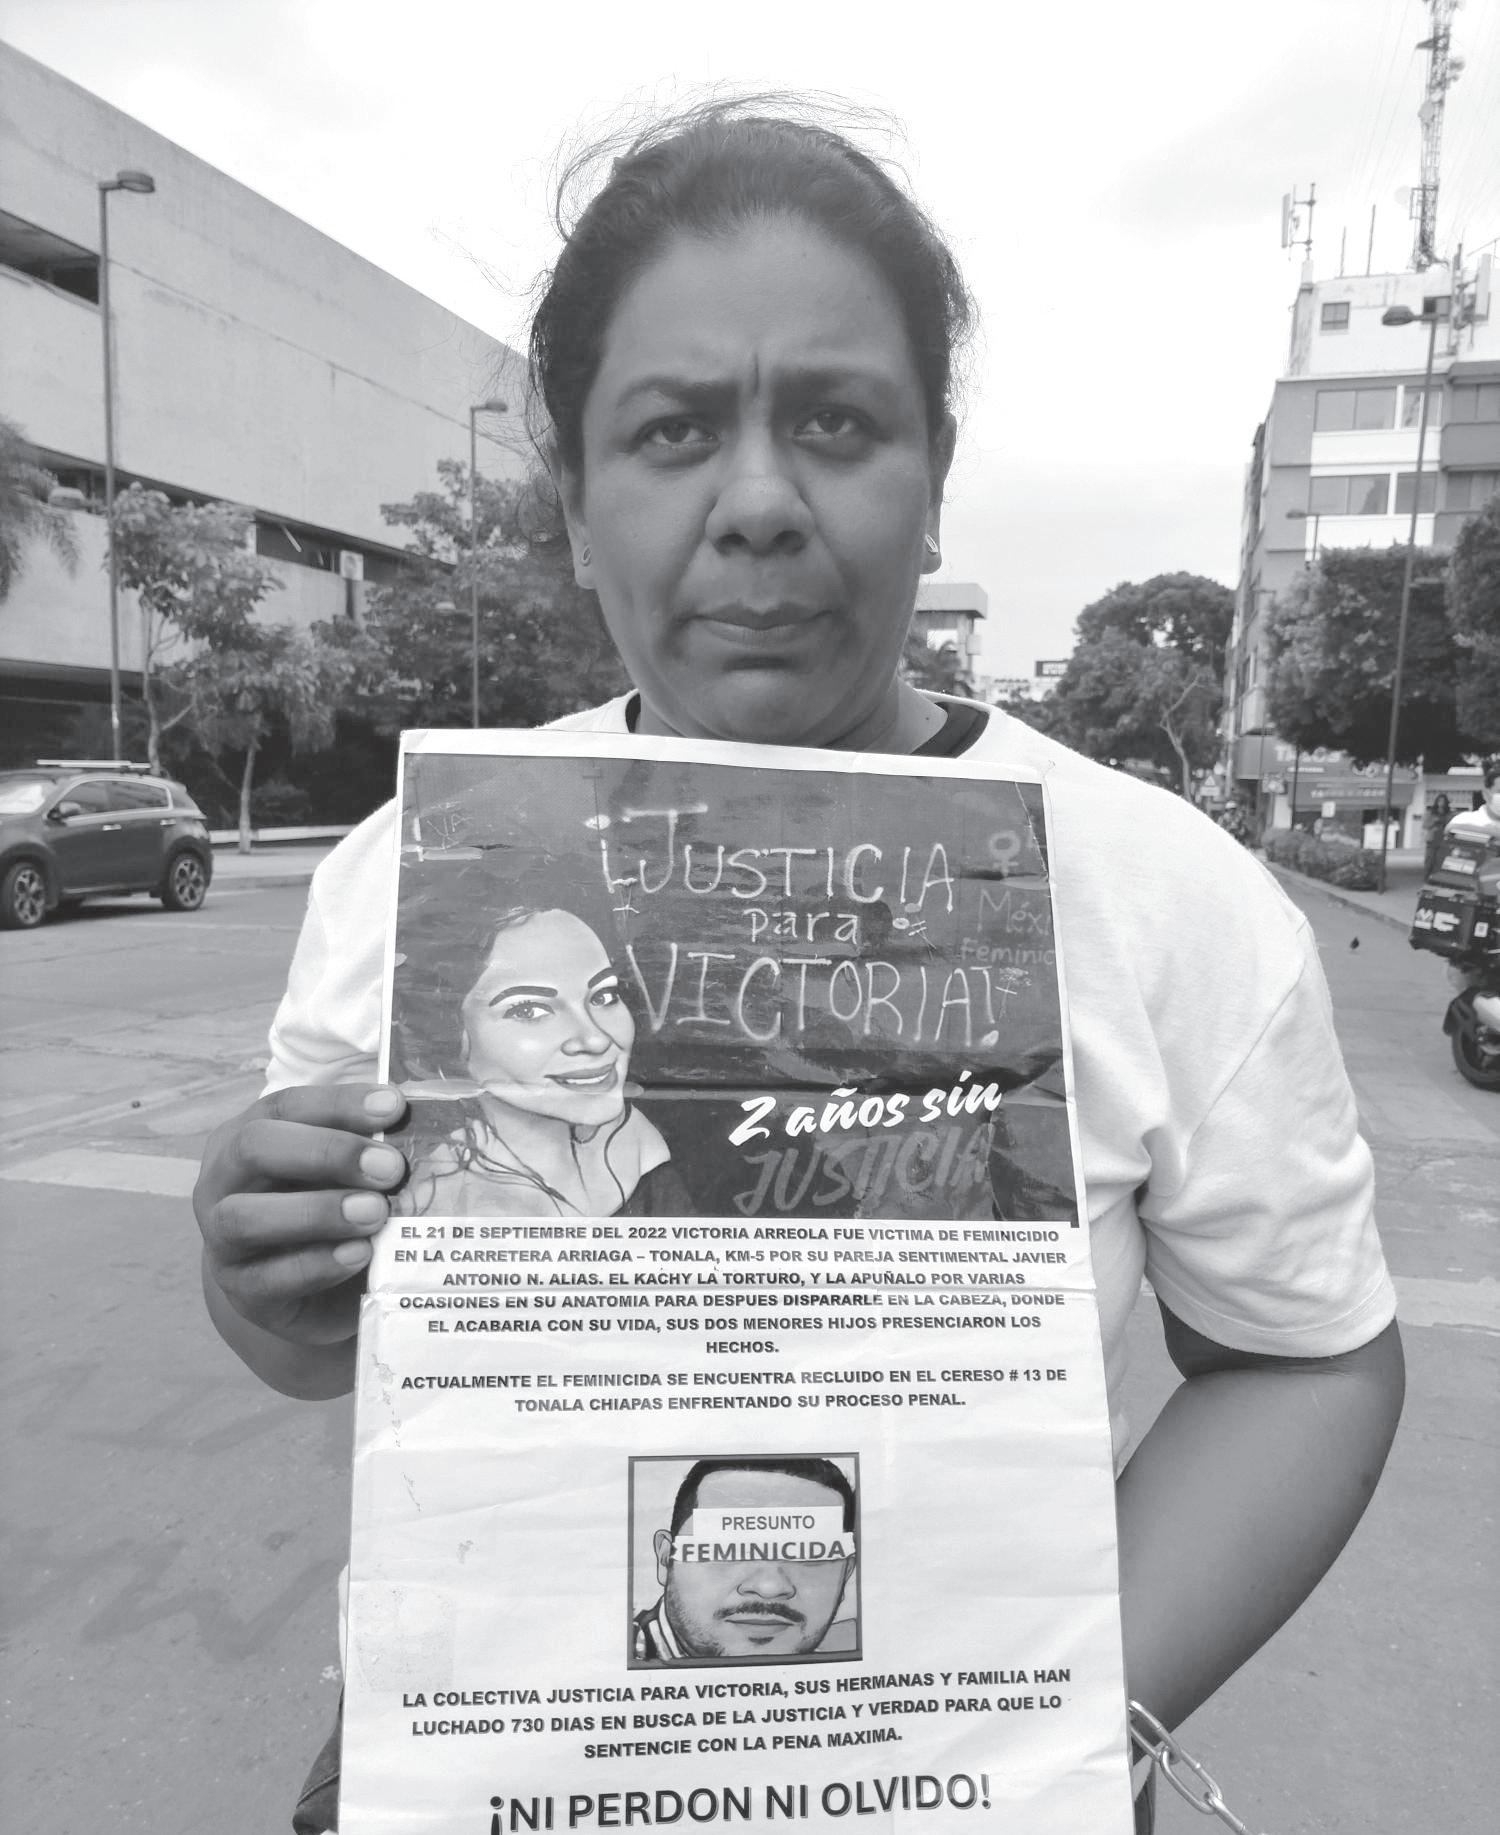 ¡JUSTICIA
para
VICTORIA!
2 años sin
JUSTICIA
EL 21 DE SEPTIEMBRE DEL 2022 VICTORIA ARREOLA FUE VICTIMA DE FEMINICIDIO
EN LA CARRETERA ARRIAGA – TONALA, KM-5 POR SU PAREJA SENTIMENTAL JAVIER
ANTONIO N. ALIAS. EL KACHY LA TORTURO, Y LA APUÑALO POR VARIAS
OCASIONES EN SU ANATOMIA PARA DESPUES DISPARARLE EN LA CABEZA, DONDE
EL ACABARIA CON SU VIDA, SUS DOS MENORES HIJOS PRESENCIARON LOS
HECHOS.
ACTUALMENTE EL FEMINICIDA SE ENCUENTRA RECLUIDO EN EL CERESO # 13 DE
TONALA CHIAPAS ENFRENTANDO SU PROCESO PENAL.
PRESUNTO
FEMINICIDA
LA COLECTIVA JUSTICIA PARA VICTORIA, SUS HERMANAS Y FAMILIA HAN
LUCHADO 730 DIAS EN BUSCA DE LA JUSTICIA Y VERDAD PARA QUE LO
SENTENCIE CON LA PENA MAXIMA.
¡NI PERDON NI OLVIDO!